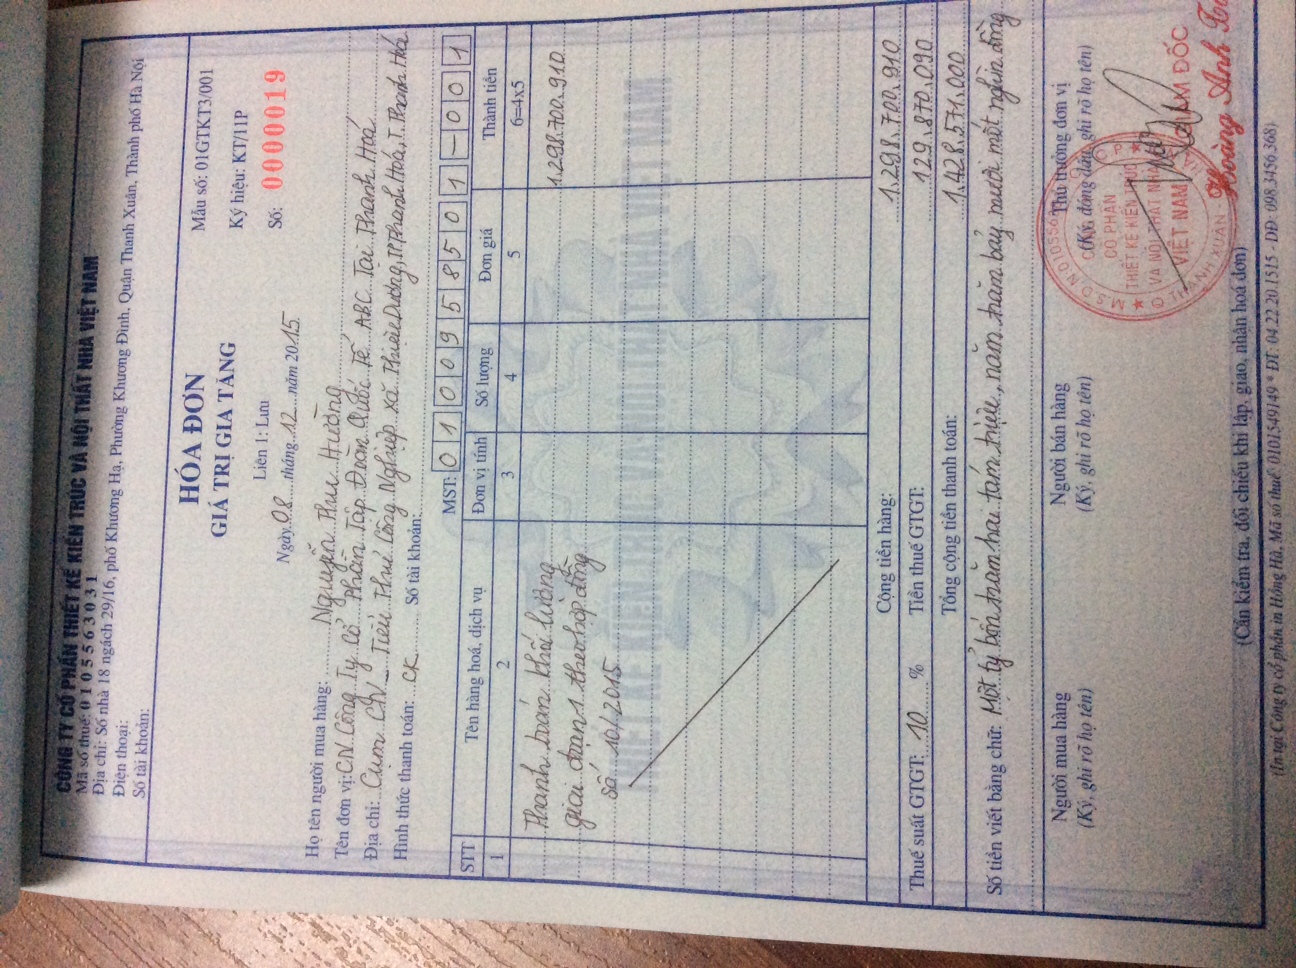 CÔNG TY CỔ PHẦN THIẾT KẾ KIẾN TRÚC VÀ NỘI THẤT NHÀ VIỆT NAM
Mã số thuế: 0105563031
Địa chỉ: Số nhà 18 ngách 29/16, phố Khương Hạ, Phường Khương Đình, Quận Thanh Xuân, Thành phố Hà Nội
Điện thoại:
Số tài khoản:
HÓA ĐƠN
GIÁ TRỊ GIA TĂNG
Mẫu số: 01GTKT3/001
Ký hiệu: KT/11P
Liên 1: Lưu
Số: 0000019
Ngày 08 tháng 12 năm 2015
Họ tên người mua hàng: Nguyễn Thu Hường
Tên đơn vị: CN Công Ty Cổ Phần Tập Đoàn Quốc Tế ABC Tại Thanh Hoá
Địa chỉ: Cụm CN - Tiểu Thủ Công Nghiệp xã Thiệu Dương, TP Thanh Hoá, T. Thanh Hoá
Hình thức thanh toán: CK Số tài khoản:
MST: 0100095850 1-001
STT Tên hàng hoá, dịch vụ Đơn vị tính Số lượng Đơn giá Thành tiền
1 2 3 4 5 6=4x5
Thanh toán khối lượng 1.298.700.910
giai đoạn 1 theo hợp đồng
số 10/2015
THIẾT KẾ KIẾN TRÚC VÀ NỘI THẤT NHÀ VIỆT NAM
Cộng tiền hàng: 1.298.700.910
Thuế suất GTGT: 10 % Tiền thuế GTGT: 129.870.090
Tổng cộng tiền thanh toán: 1.428.571.000
Số tiền viết bằng chữ: Một tỷ bốn trăm hai tám triệu, năm trăm bảy mươi mốt nghìn đồng
Người mua hàng Người bán hàng Thủ trưởng đơn vị
(Ký, ghi rõ họ tên) (Ký, ghi rõ họ tên) (Ký, đóng dấu, ghi rõ họ tên)
CÔNG TY
CỔ PHẦN
THIẾT KẾ KIẾN TRÚC
VÀ NỘI THẤT NHÀ
VIỆT NAM
GIÁM ĐỐC
Hoàng Anh
(Cần kiểm tra, đối chiếu khi lập, giao, nhận hoá đơn)
(In tại Công ty cổ phần in Hồng Hà, Mã số thuế: 0101549149 * ĐT: 04.22.20.1515 - DĐ: 098.3456.368)